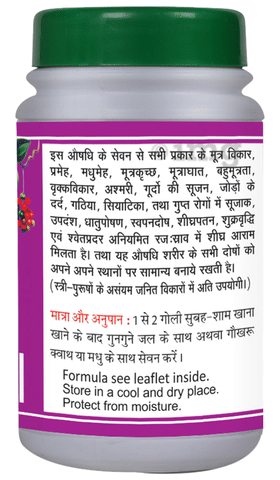 इस औषधि के सेवन से सभी प्रकार के मूत्र विकार,
प्रमेह, मधुमेह, मूत्रकृच्छ, मूत्राघात, बहुमूत्रता,
वृक्कविकार, अश्मरी, गूर्दो की सूजन, जोड़ों के
दर्द, गठिया, सियाटिका, तथा गुप्त रोगों में सूजाक,
उपदंश, धातुपोषण, स्वपनदोष, शीघ्रपतन, शुक्रवृद्धि
एवं श्वेतप्रदर अनियमित रजःस्राव में शीघ्र आराम
मिलता है। तथा यह औषधि शरीर के सभी दोषों को
अपने अपने स्थानों पर सामान्य बनाये रखती है।
(स्त्री-पुरूषों के असंयम जनित विकारों में अति उपयोगी।)
मात्रा और अनुपान : 1 से 2 गोली सुबह-शाम खाना
खाने के बाद गुनगुने जल के साथ अथवा गौखरू
क्वाथ या मधु के साथ सेवन करें।
Formula see leaflet inside.
Store in a cool and dry place.
Protect from moisture.